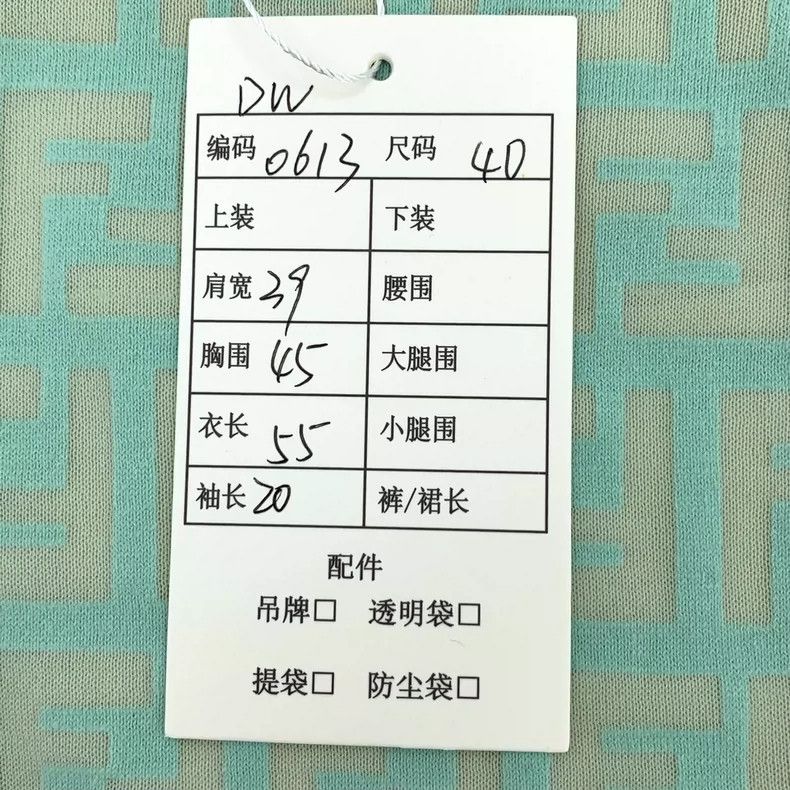 DW
编码 0613 尺码 40
上装 下装
肩宽 39 腰围
胸围 45 大腿围
衣长 55 小腿围
袖长 20 裤/裙长
配件
吊牌□ 透明袋□
提袋□ 防尘袋□